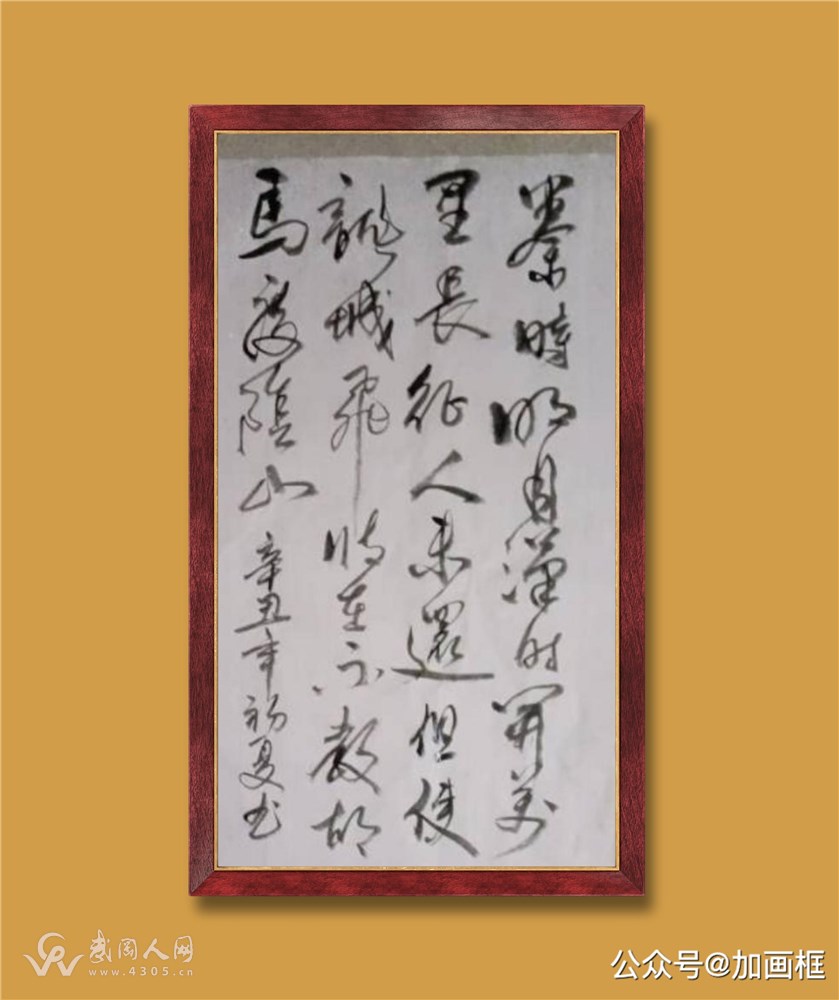 秦時明月漢时關萬
里長征人未還但使
龍城飛將在不教胡
馬度陰山 辛丑年初夏书
武冈人网
www.4305.cn
公众号@加画框